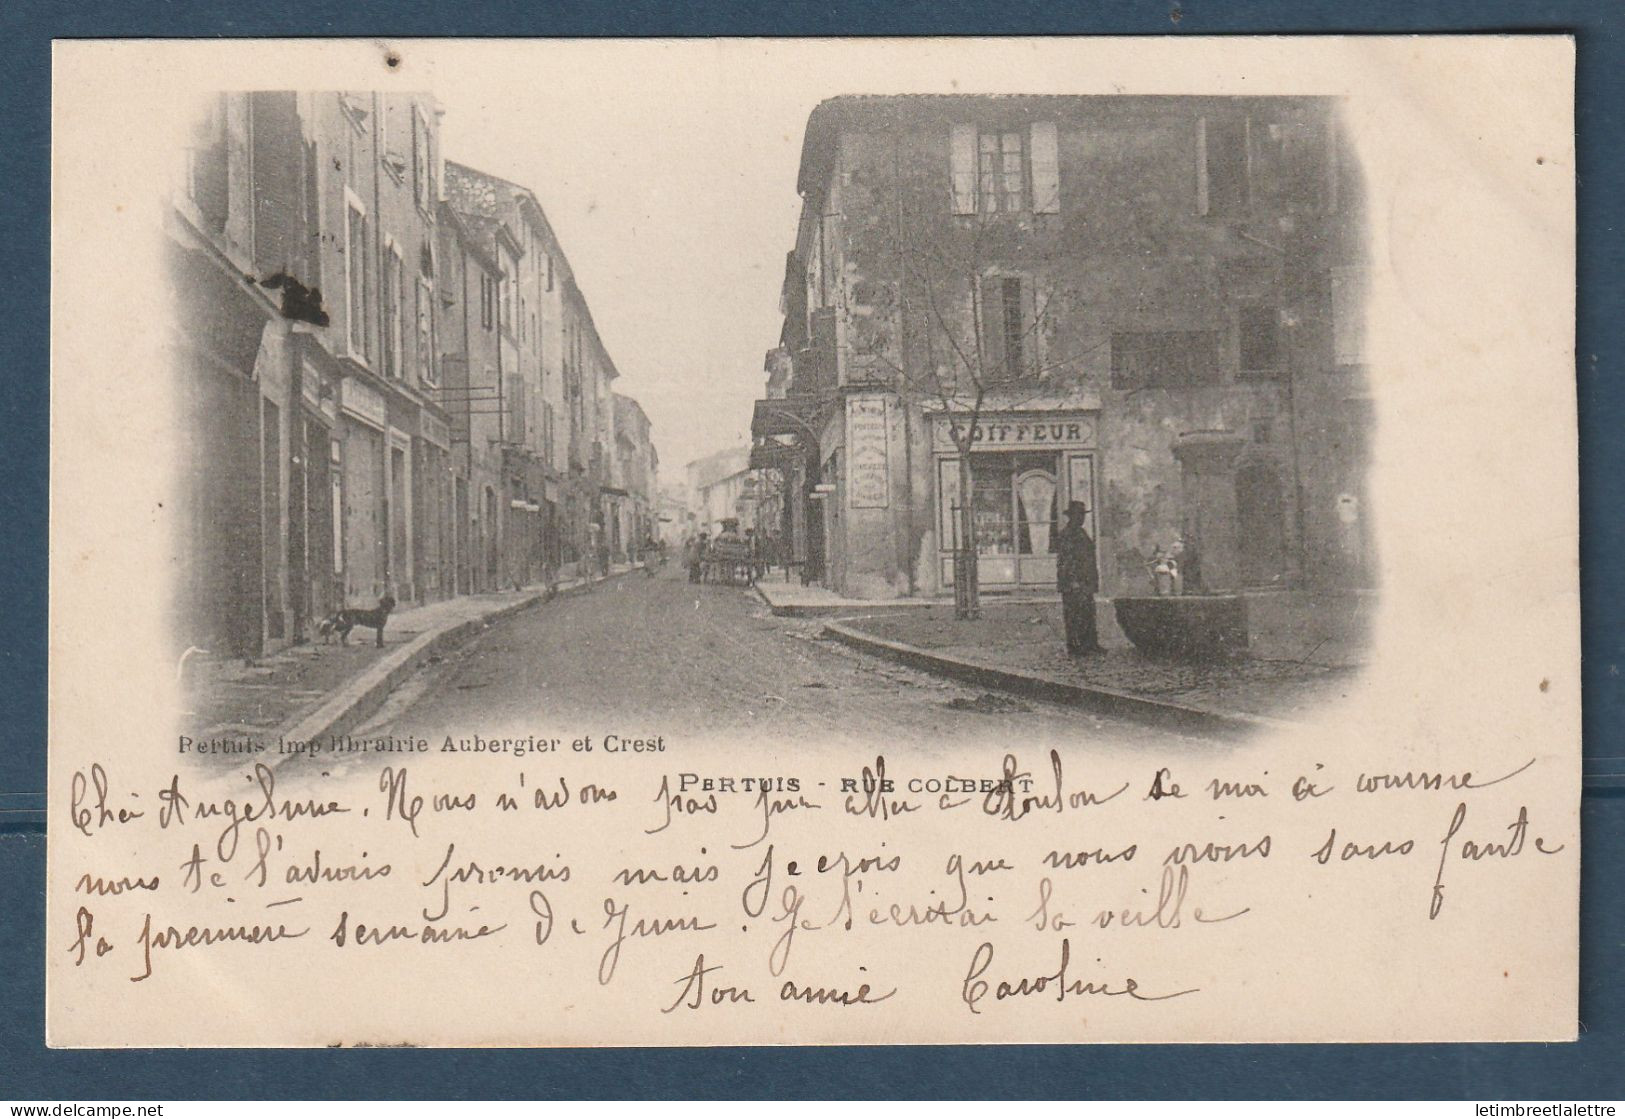 COIFFEUR
Pertuis imp librairie Aubergier et Crest
PERTUIS - RUE COLBERT
Chèr Angélinie. Nous n'avons pas pu aller à Toulon se moi ci comme
nous te l'avions promis mais je crois que nous irons sans faute
la première semaine de Juin. Je t'écritai la veille
ton amie Caroline
letimbreetlalettre